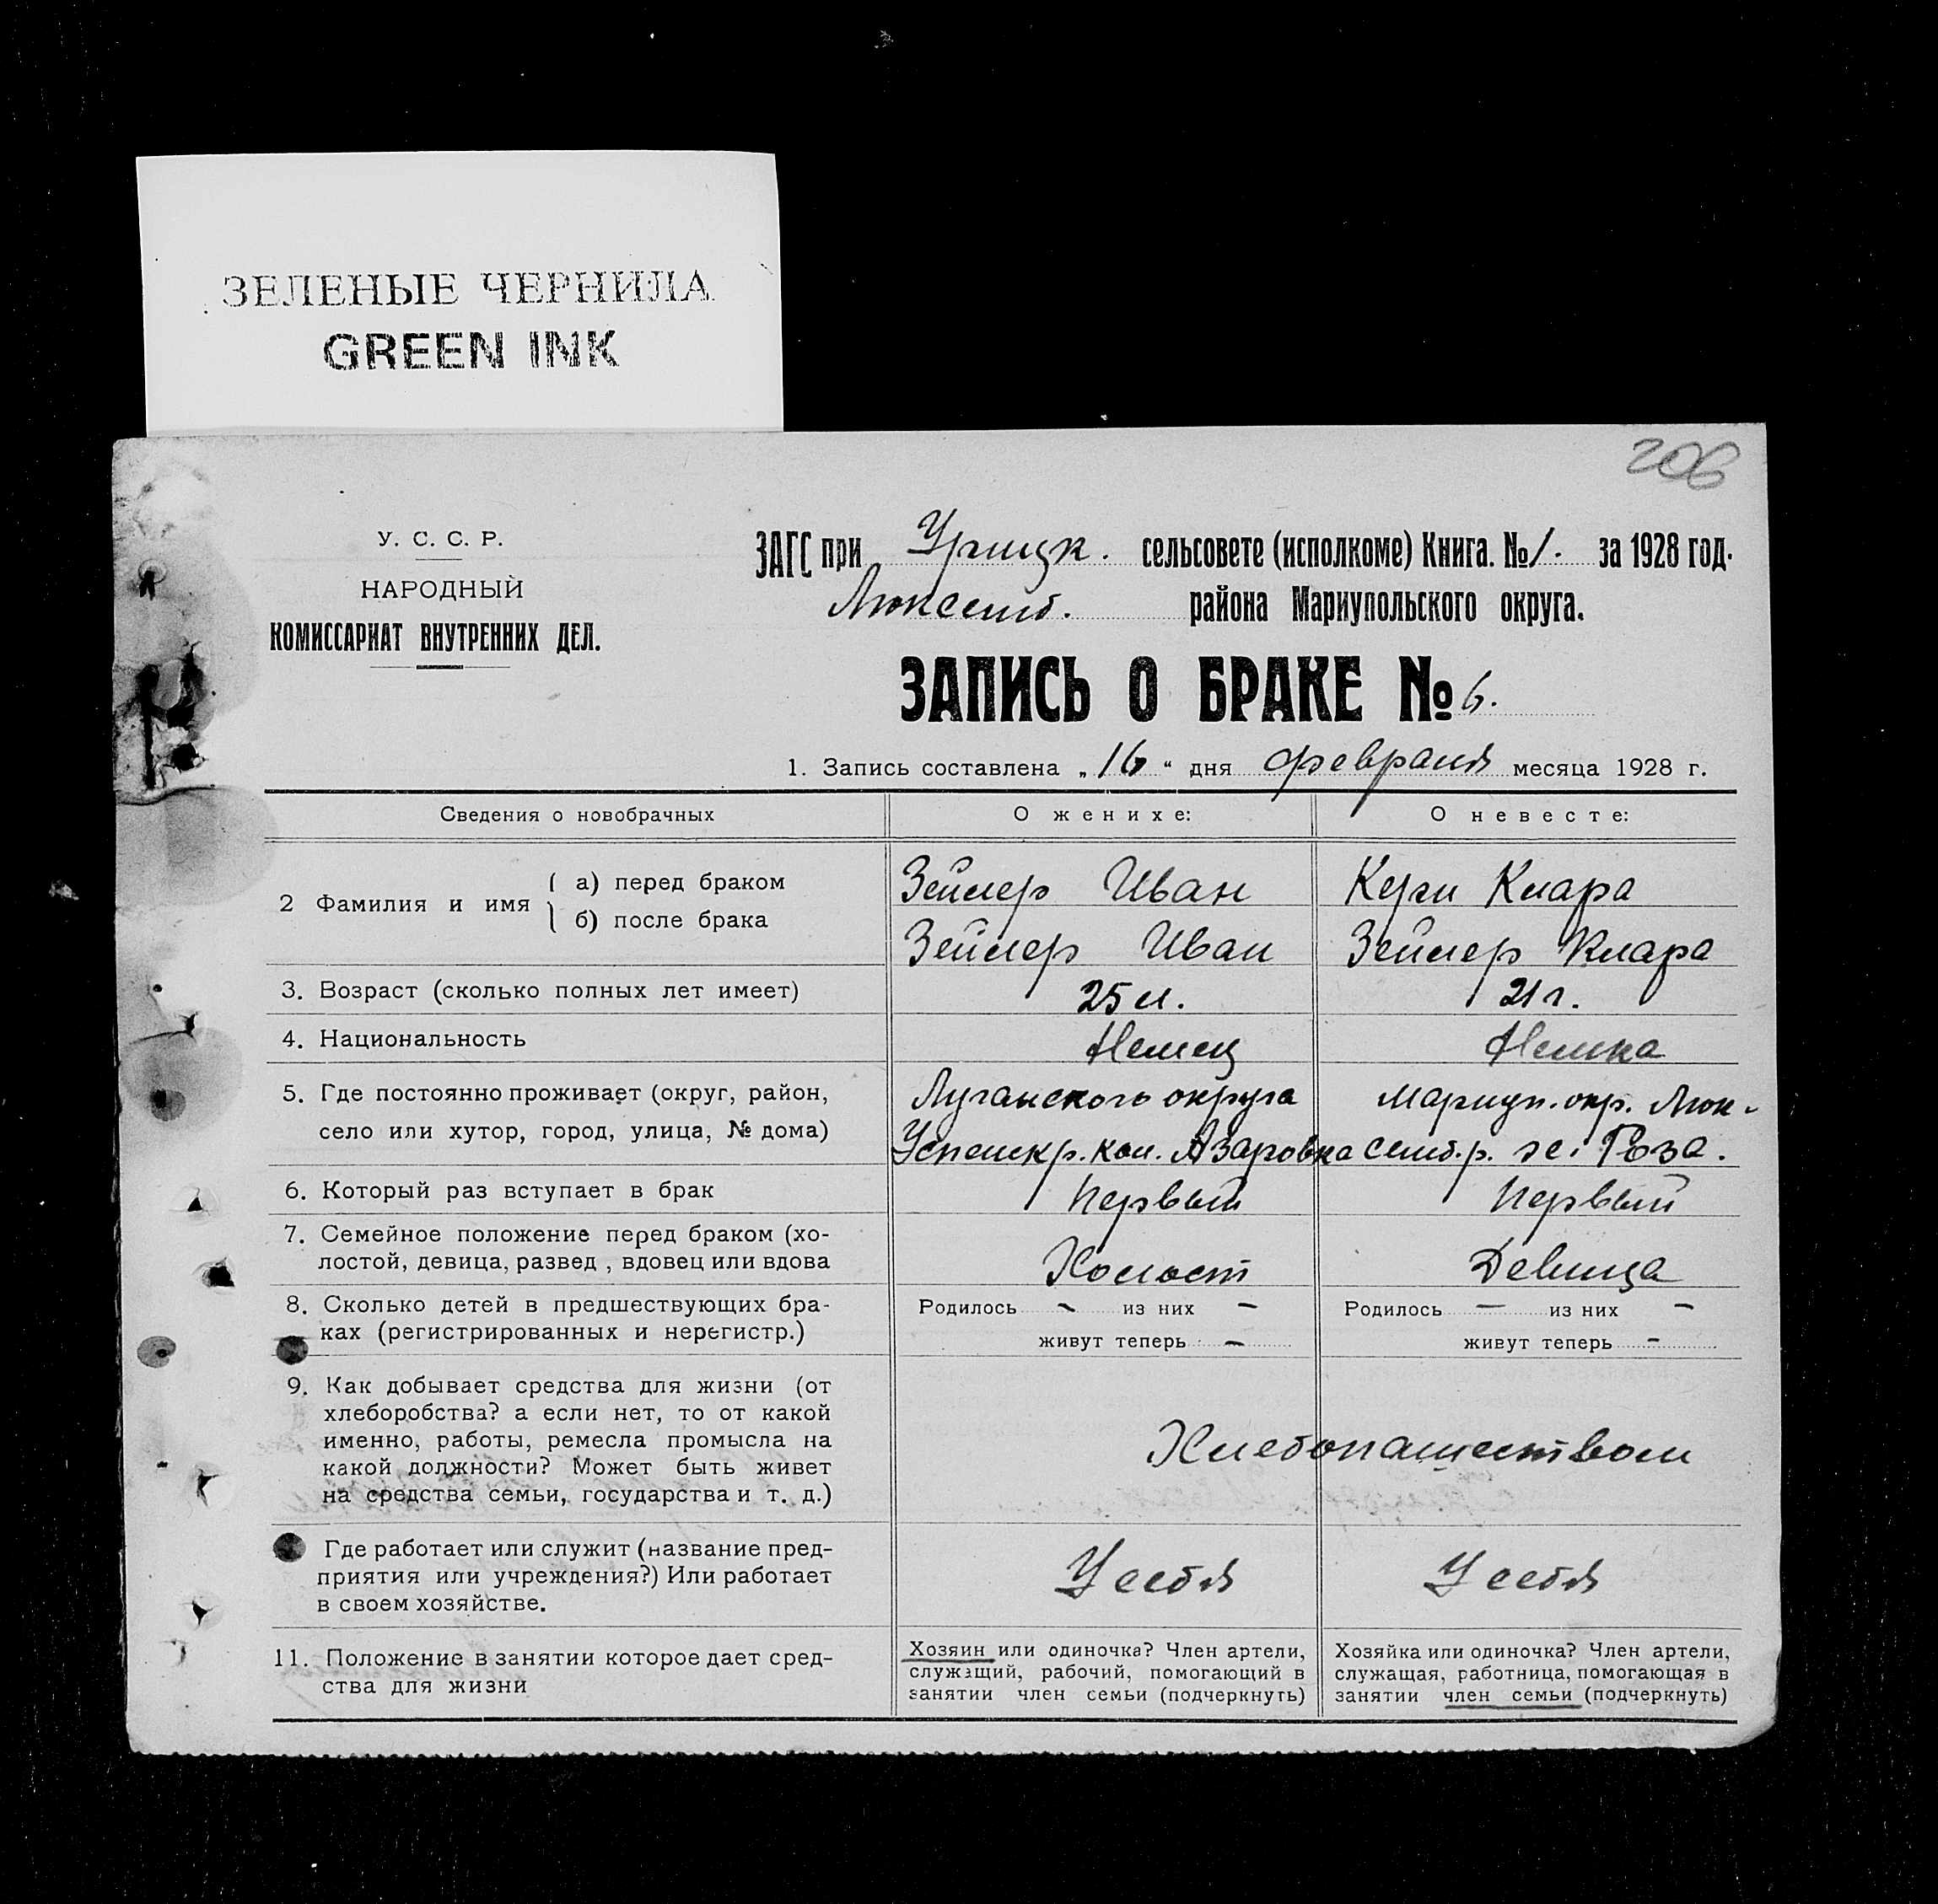 ЗЕЛЕНЫЕ ЧЕРНИЛА
GREEN INK
206
У. С. С. Р.
НАРОДНЫЙ
КОМИССАРИАТ ВНУТРЕННИХ ДЕЛ.
ЗАГС при Урицк. сельсовете (исполкоме) Книга. № 1. за 1928 год.
Люксемб. района Мариупольского округа.
ЗАПИСЬ О БРАКЕ № 6.
1. Запись составлена „16“ дня февраля месяца 1928 г.
Сведения о новобрачных О женихе: О невесте:
2 Фамилия и имя { а) перед браком Зейлер Иван Керн Клара
б) после брака Зейлер Иван Зейлер Клара
3. Возраст (сколько полных лет имеет) 25 л. 21 г.
4. Национальность Немец Немка
5. Где постоянно проживает (округ, район, Луганского округа Мариуп. окр. Люк-
село или хутор, город, улица, № дома) Успенск р. кол. Азаровка семб. р. к. Роза.
6. Который раз вступает в брак Первый Первый
7. Семейное положение перед браком (хо-
лостой, девица, развед , вдовец или вдова Холост Девица
8. Сколько детей в предшествующих бра- Родилось - из них - Родилось - из них -
ках (регистрированных и нерегистр.) живут теперь - живут теперь -
9. Как добывает средства для жизни (от
хлеборобства? а если нет, то от какой
именно, работы, ремесла промысла на Хлебопашеством
какой должности? Может быть живет
на средства семьи, государства и т. д.)
Где работает или служит (название пред-
приятия или учреждения?) Или работает У себя У себя
в своем хозяйстве.
11. Положение в занятии которое дает сред-
ства для жизни
Хозяин или одиночка? Член артели,
служащий, рабочий, помогающий в
занятии член семьи (подчеркнуть)
Хозяйка или одиночка? Член артели,
служащая, работница, помогающая в
занятии член семьи (подчеркнуть)